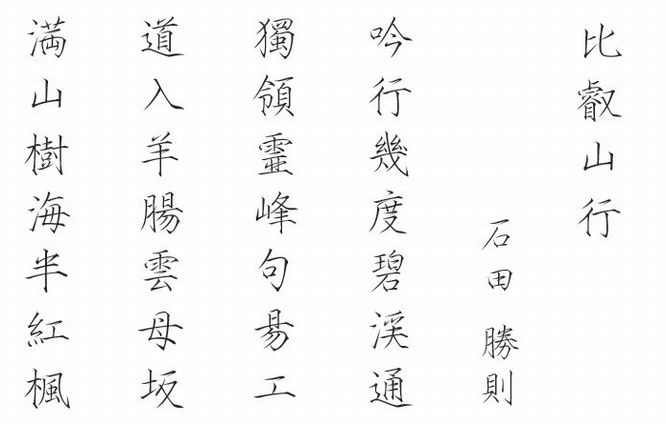 比叡山行
石田 勝則
吟行幾度碧渓通
獨領靈峰句昜工
道入羊腸雲母坂
満山樹海半紅楓